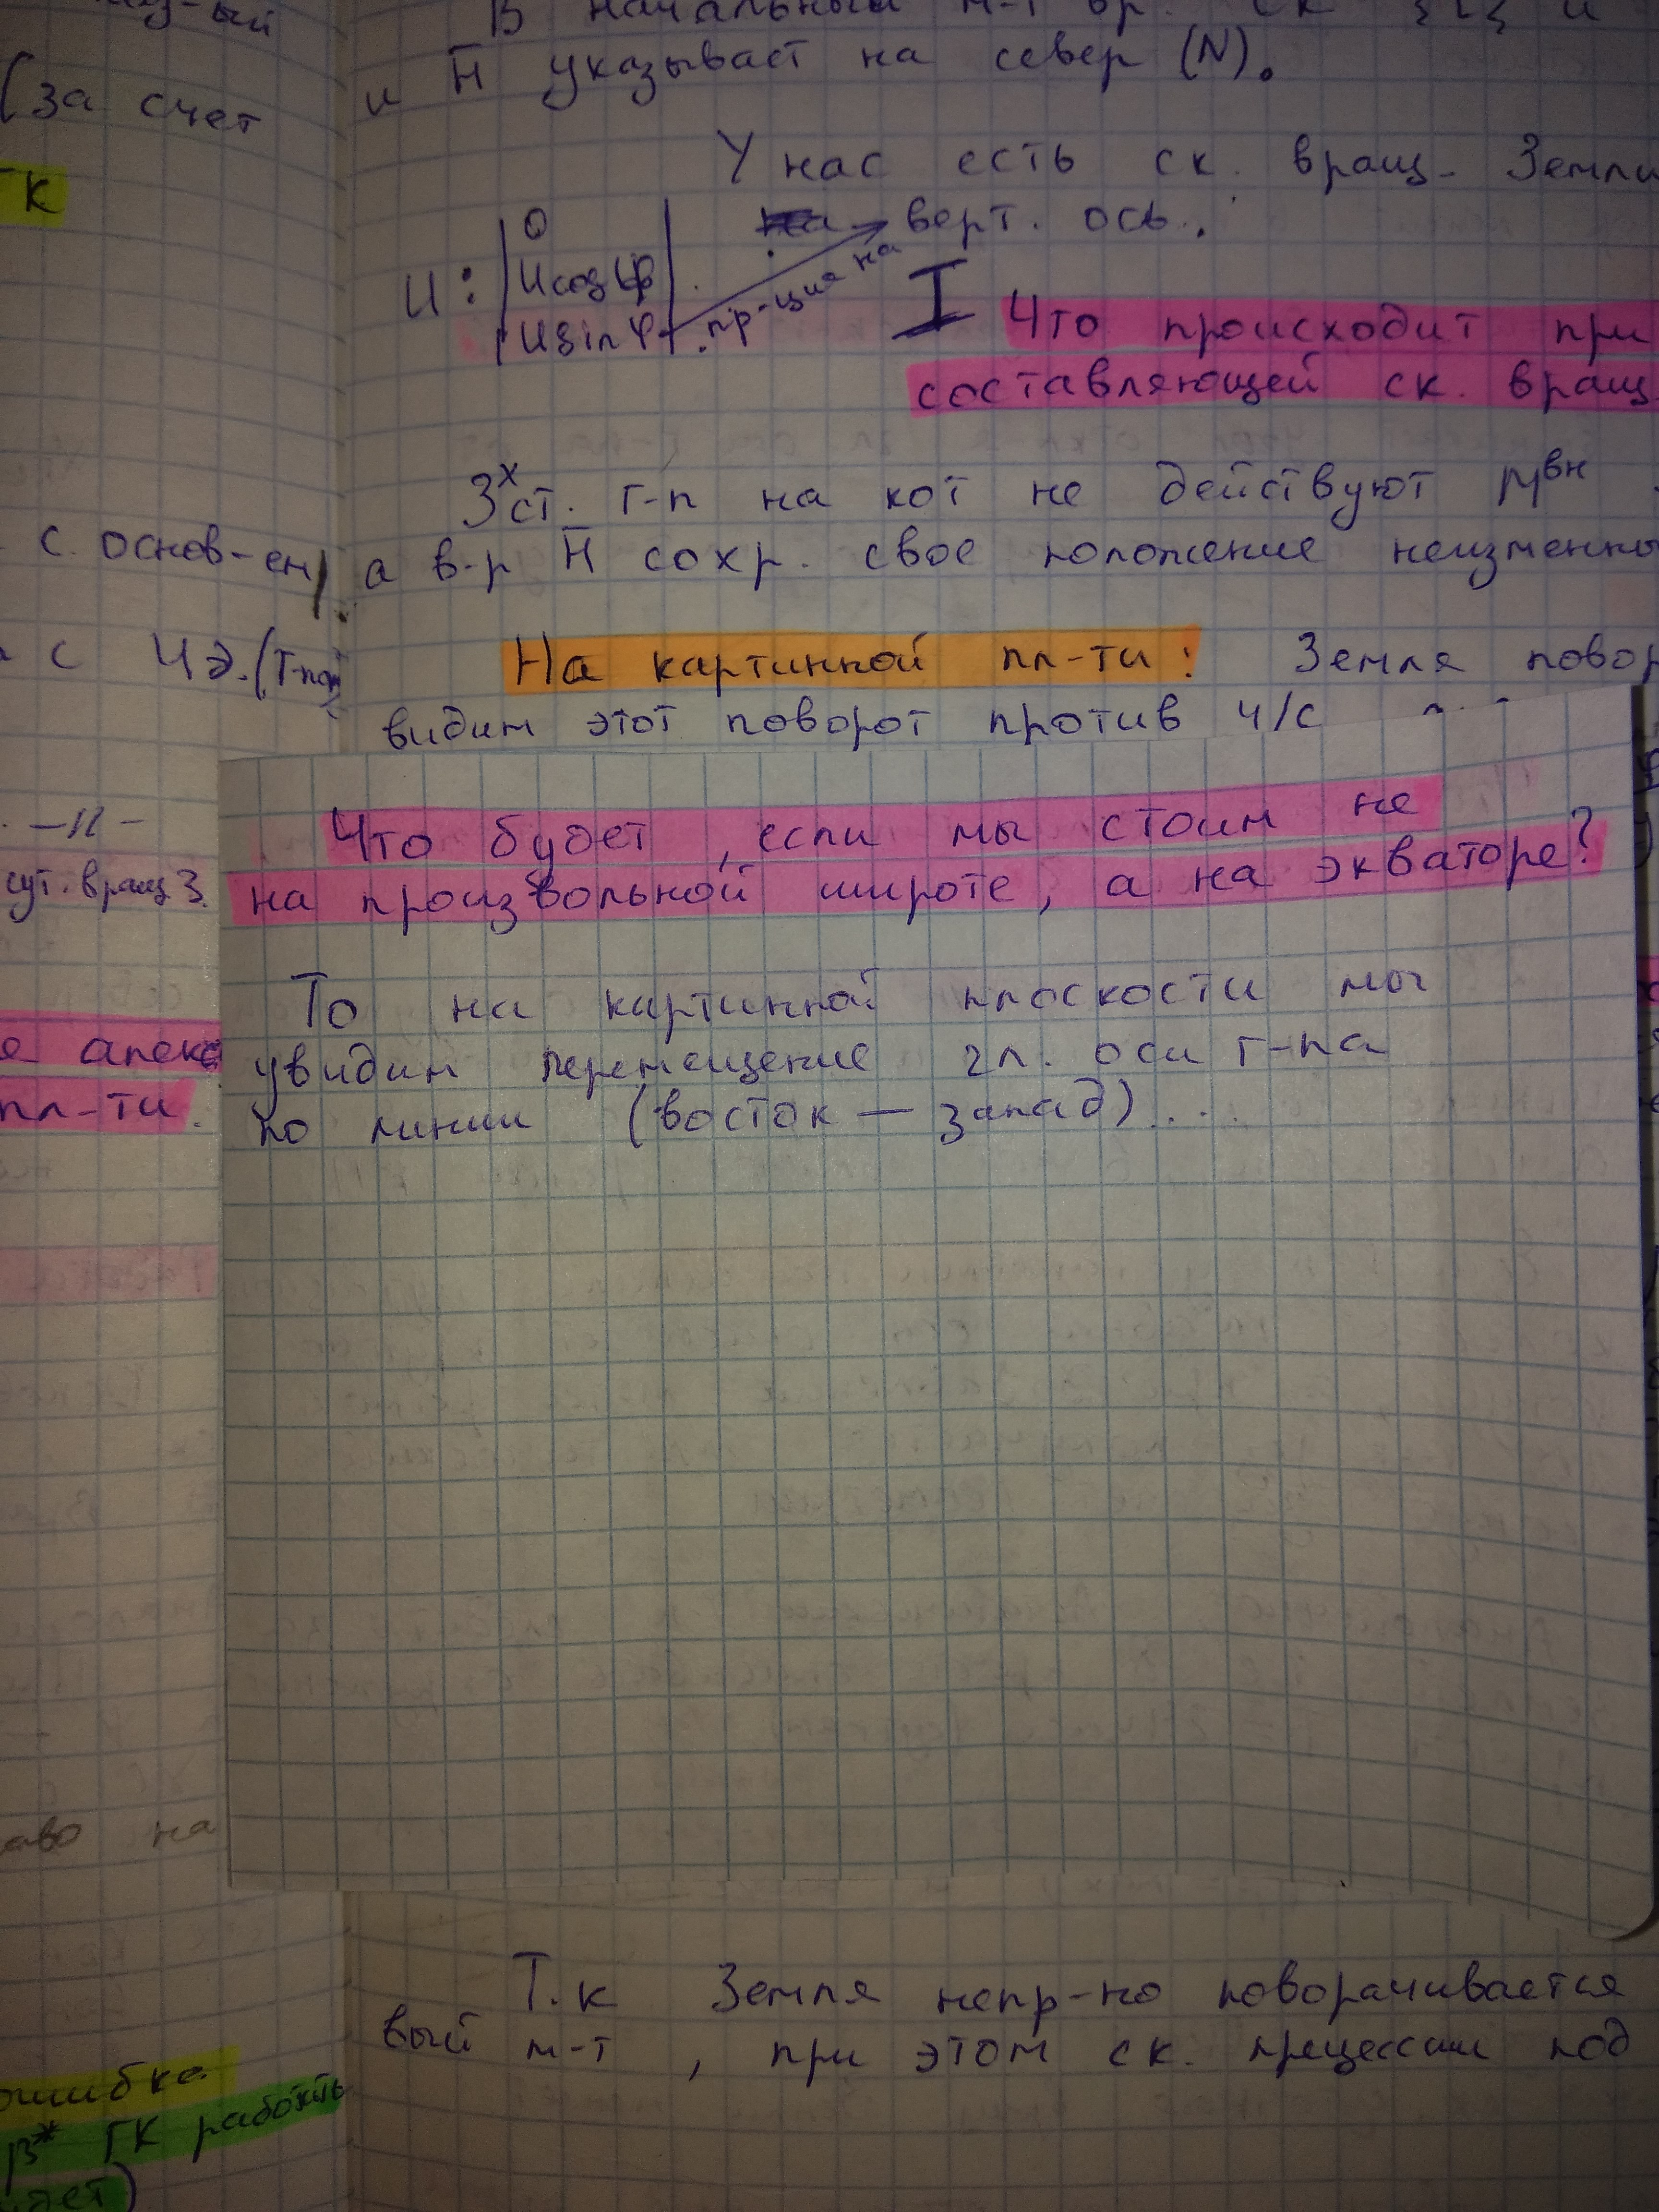 (за счет
ГК
с. основ-ем
с ЧЭ.
— 11 —
сут. вращ З.
е апекс
пл-ти.
на
ошибка
β* ГК работать
В начальный м-т вр. ск
и H̅ указывает на север (N).
У нас есть ск. вращ. Земли
верт. ось.
пр-ция на
U: | 0
U cos φ
U sin φ |
I Что происходит при
составляющей ск. вращ.
3х ст. г-п на кот не действуют Mвн
а в-р H̅ сохр. свое положение неизменны
На картинной пл-ти: Земля повор
видим этот поворот против ч/с
Что будет, если мы стоим не
на произвольной широте, а на экваторе?
То на картинной плоскости мы
увидим перемещение гл. оси г-па
по линии (восток — запад)...
Т.к Земля непр-но поворачивается
вый м-т, при этом ск. прецессии под